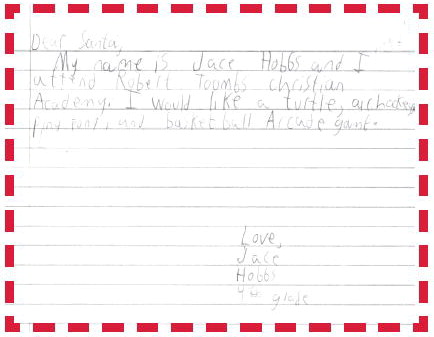 Dear Santa,
My name is Jace Hobbs and I
attend Robert Toombs christian
Academy. I would like a turtle, air hockey,
and basketball Arcade game.
Love,
Jace
Hobbs
4th grade